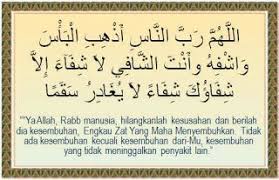 اللَّهُمَّ رَبَّ النَّاسِ أَذْهِبِ الْبَأْسَ
وَاشْفِهِ وَأَنْتَ الشَّافِي لَا شِفَاءَ إِلَّا
شِفَاؤُكَ شِفَاءً لَا يُغَادِرُ سَقَمًا
"Ya Allah, Rabb manusia, hilangkanlah kesusahan dan berilah
dia kesembuhan, Engkau Zat Yang Maha Menyembuhkan. Tidak
ada kesembuhan kecuali kesembuhan dari-Mu, kesembuhan
yang tidak meninggalkan penyakit lain."